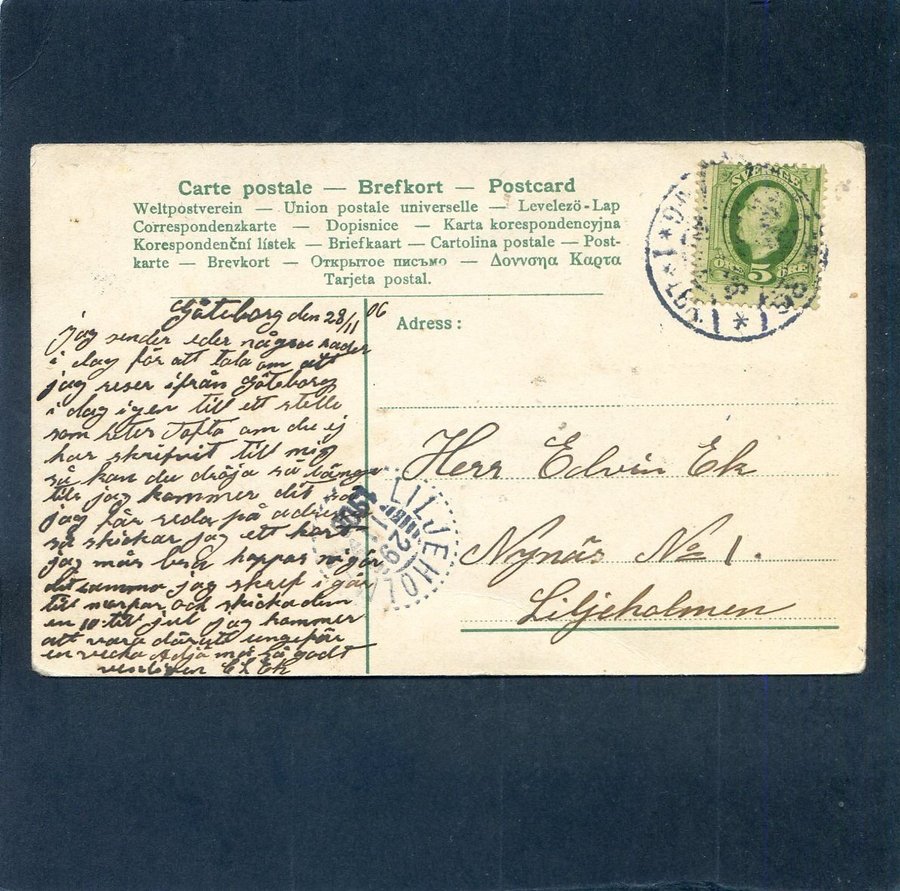 Carte postale — Brefkort — Postcard
Weltpostverein — Union postale universelle — Levelező-Lap
Correspondenzkarte — Dopisnice — Karta korespondencyjna
Korespondenční lístek — Briefkaart — Cartolina postale — Post-
karte — Brevkort — Открытое письмо — Δοννσηα Καρτα
Tarjeta postal.
SVERIGE
ÖRE 5 ÖRE
Göteborg den 28/11 06
jag sender eder några rader
i dag för att tala om att
jag reser ifrån Göteborg
i dag igen till ett stelle
som heter om du ej
har skrifvit till mig
så kan du dröja så länge
tils jag kommer dit så
jag får reda på adress
så skickar jag ett kort
jag mår bra hoppas ni gör
det samma jag skref i går
till och skicka dem
en 10 till jul jag kommer
att vara därute ungefär
en vecka Adjö må så godt
venligen Ek
Adress:
Herr Edvin Ek
Nynäs No 1.
Liljeholmen
LILJEHOLMEN
29
1906